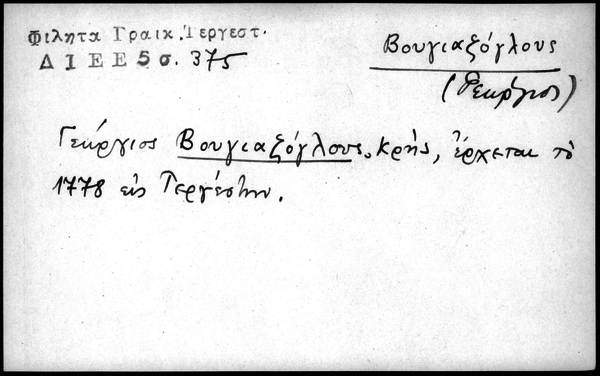 Φιλητα Γραικ. Τεργεστ.
Δ Ι Ε Ε 5 σ. 375
Βουγιαξόγλους
(Γεώργιος)
Γεώργιος Βουγιαξόγλους, κρής, ἔρχεται τὸ
1778 εἰς Τεργέστην.